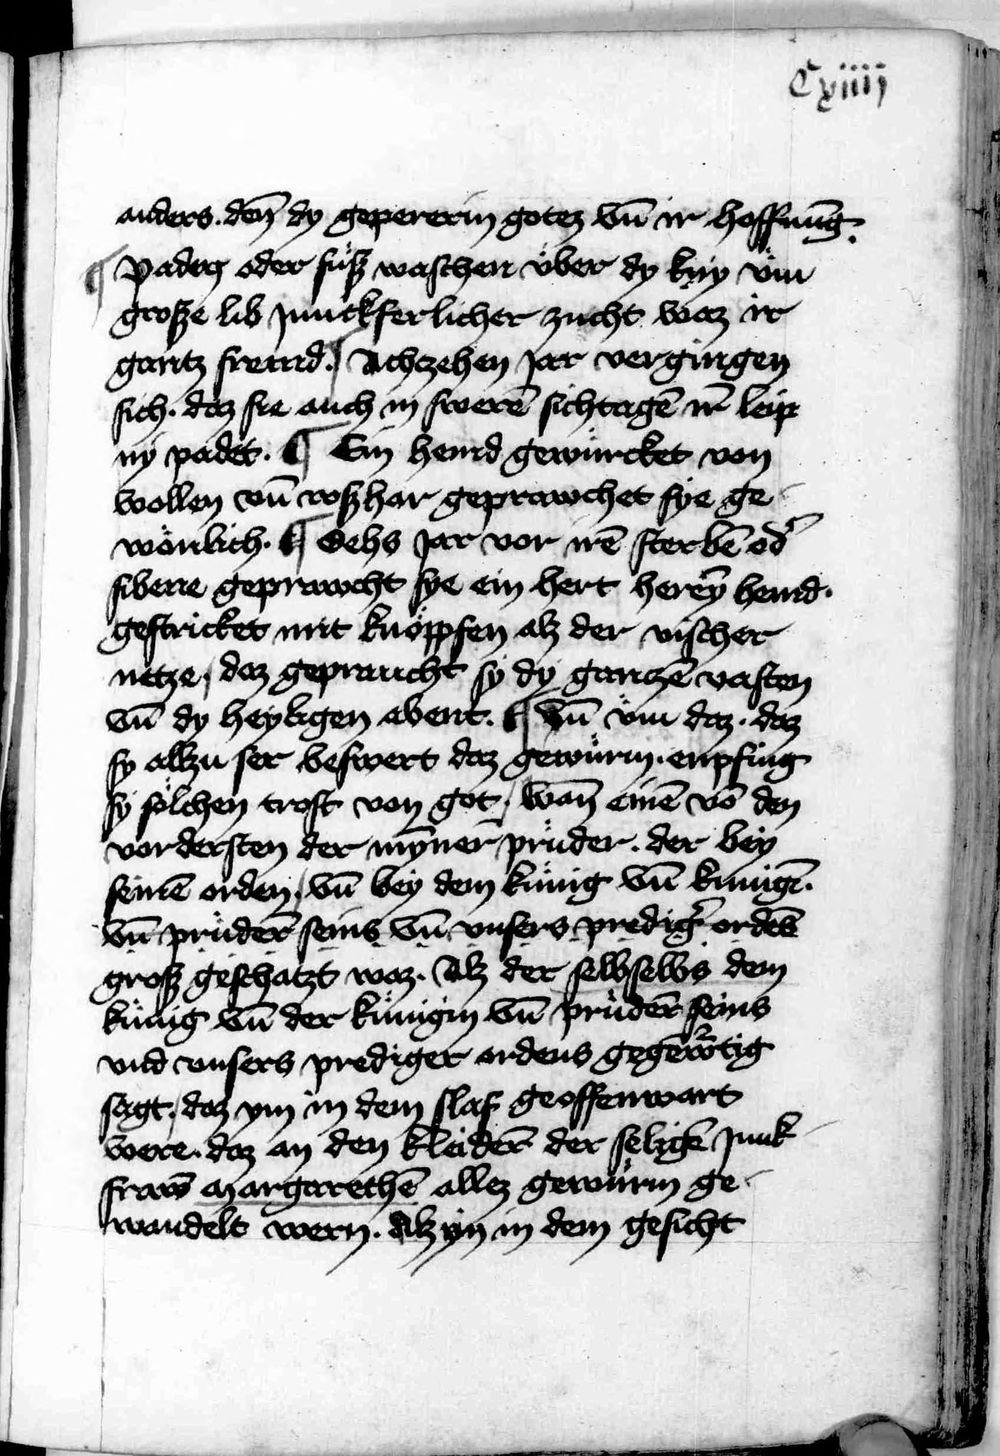 Cxiiij
anders. deñ dy gepererin gotez vñ ir hoffnu̅g.
¶ Paden oder füsz waschen über dy kny vm̈
grosze lib junckferlicher zucht waz ir
gantz fremd. ¶ Achczehen jar vergingen
sich. daz sie auch in swere̅ sichtage̅ ir̅ leip
ny padet. ¶ Ein hemd gewürcket von
wollen vñ roszhar geprawchet sye ge-
wönlich. ¶ Sehs jar vor ire̅ sterbe̅ od̛
sibene geprawcht sye ein hert here̅y hemd.
gestricket mit knöppfen alz der vischer
netze, daz gepraucht sy dy gancze̅ vasten
vñ dy heyligen abent. ¶ Vñ vm̈ daz. daz
sy allzu ser beswert daz gewürm. enpfing
sy sölchen trost von got, wan̅ eine̅ vo̅ den
vordersten der my̅ner̅ prüder. der bey
seine̅ orden, vñ bey dem künig vñ kunige̅.
vñ prüder̅ seins vñ vnsers predig̛ orde̅s
grosz geschatzt waz. Alz der selbselbs dem
künig vñ der künigin vñ prüder̅ seins
vnd vnsers prediger ordens gegenw̛tig
sagt, daz ym in dem slaf geoffenwart
were. daz an den kleider̅ der selige̅ junk-
fraw̅ Margarethe̅ allez gewürm ge-
wandelt wern. Alz ym in dem gesicht